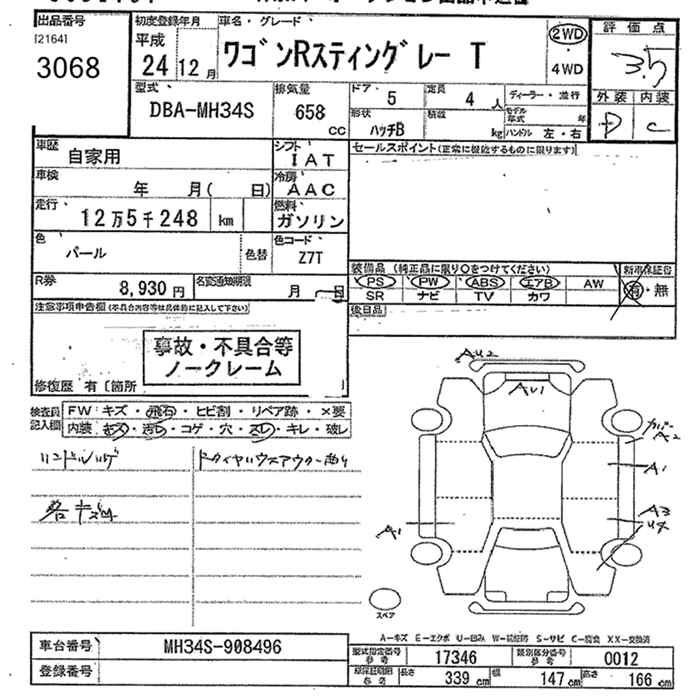 出品番号
[2164]
3068
初度登録年月
平成
24年 12月
車名・グレード
ワゴンRスティングレー T
2WD
・
4WD
評価点
3.5
外装 内装
D C
型式
DBA-MH34S
排気量
658
cc
ドア・ 5
定員 4 人
ディーラー・並行
形状
ハッチB
積載 kg
モデル年式 年
ハンドル 左・右
車歴
自家用
シフト
IAT
セールスポイント(正常に機能するものに限ります)
車検
年 月( 日)
冷房
AAC
走行
12万5千248 km
燃料
ガソリン
色
パール
色替
色コード
Z7T
装備品 (純正品に限り○をつけてください)
新車保証書
PS PW ABS エアB AW
SR ナビ TV カワ
有・無
R券
8,930円
名変通知期限
月 日
後日品
注意事項申告欄(不具合内容等は具体的に記入して下さい)
事故・不具合等
ノークレーム
修復歴 有〔箇所
検査員
記入欄
FW キズ・飛石・ヒビ割・リペア跡・×要
内装 キズ・汚レ・コゲ・穴・スレ・キレ・破レ
各キズ凹
AU2
AU1
カバー
A2
A1
A3
U4
A1
スペア
A-キズ E-エクボ U-凹み W-補修跡 S-サビ C-腐食 XX-交換済
車台番号 MH34S-908496
登録番号
型式指定番号
参考
17346
類別区分番号
参考
0012
長さ 339 cm
幅 147 cm
高さ 166 cm